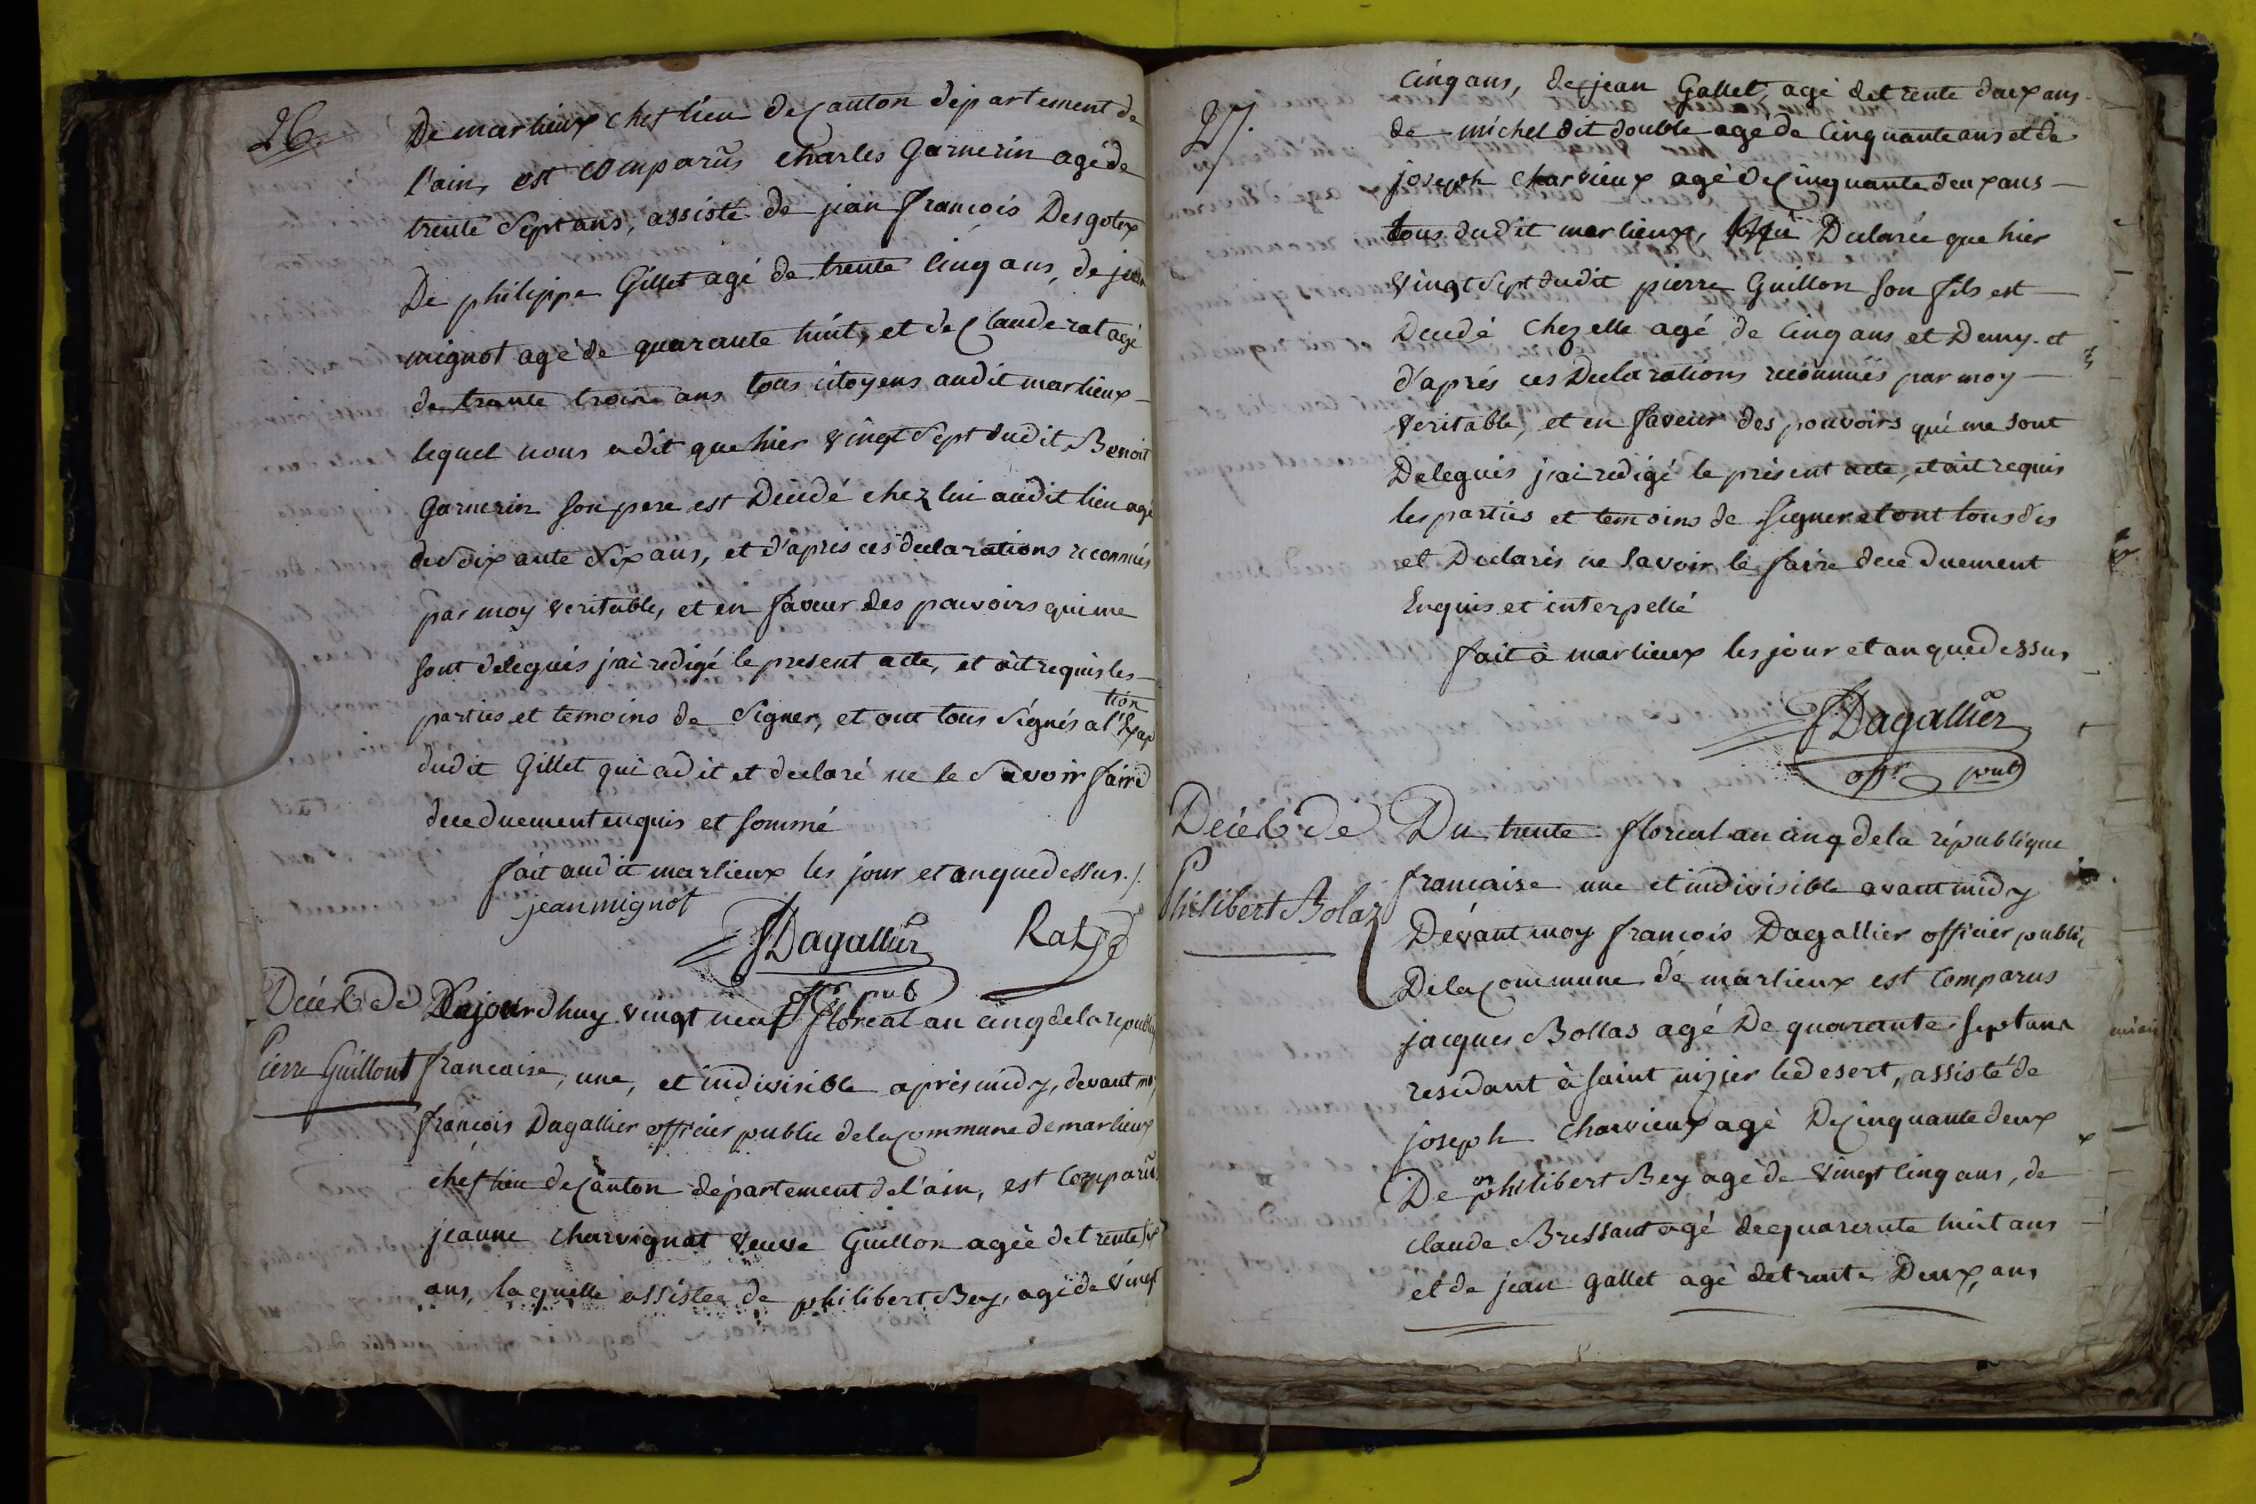 26.
De marlieux chef lieu de Canton département de
l'ain, est comparus charles Garnerin agé de
trente Sept ans, assisté de jean françois Desgotex
De philippe Gillet agé de trente cinq ans, de jean
mignot agé de quarante huit, et de Claude rat agé
de trante trois ans tous citoyens audit marlieux
lequel nous a dit que hier vingt Sept dudit Benoit
Garnerin son pere est Décédé chez lui audit lieu agé
de Soixante Six ans, et d'apres ces declarations reconnues
par moy veritable, et en faveur des pouvoirs qui me
sont delegués j'ai redigé le present acte, et ait requis les
parties et temoins de Signer, et ont tous Signés a l'Exception
dudit Gillet qui a dit et declaré ne le Savoir faire
de ce duement enquis et sommé
fait audit marlieux les jour et an que dessus ./.
jean mignot
JDagallier Rat
off pub
Décès de Dujourdhuy vingt neuf floreal an cinq de la republi
Pierre Guillout francaise, une, et indivisible après midy, devant moy
françois Dagallier officier public de la Commune de marlieux
chef lieu de Canton département de l'ain, est comparus
jeanne charvignat veuve Guillon agée de trente six
ans, la quelle assistee de philibert Bey, agé de vingt
27.
cinq ans, de jean Gallet, agé de trente deux ans
de michel dit double agé de cinquante ans et de
joseph charvieux agé de Cinquante deux ans
tous dudit marlieux, Declarée que hier
vingt Sept dudit pierre Guillon son fils est
Decedé chez elle agé de cinq ans et Demy. et
d'aprés ces Declarations reconnues par moy
veritable, et en faveur des pouvoirs qui me sont
Delegués j'ai redigé le présent acte, et ait requis
les parties et temoins de signer et ont tous dis
et Declarés ne Savoir le faire de ce duement
Enquis et interpellé
fait à marlieux les jour et an que dessus
JDagallier
offr pub
Décès de Du trente floreal an cinq de la république
Philibert Bolaz francaise une et indivisible avant midy
Dévant moy françois Dagallier officier public
De la Commune de marlieux est comparus
jacques Bollas agé De quarante sept ans
residant à saint nizier le desert, assisté de
joseph charvieux agé De Cinquante deux
ans
De philibert Bey agé de vingt cinq ans, de
claude Bressant agé de quarente huit ans
et de jean gallet agé de trente Deux, ans